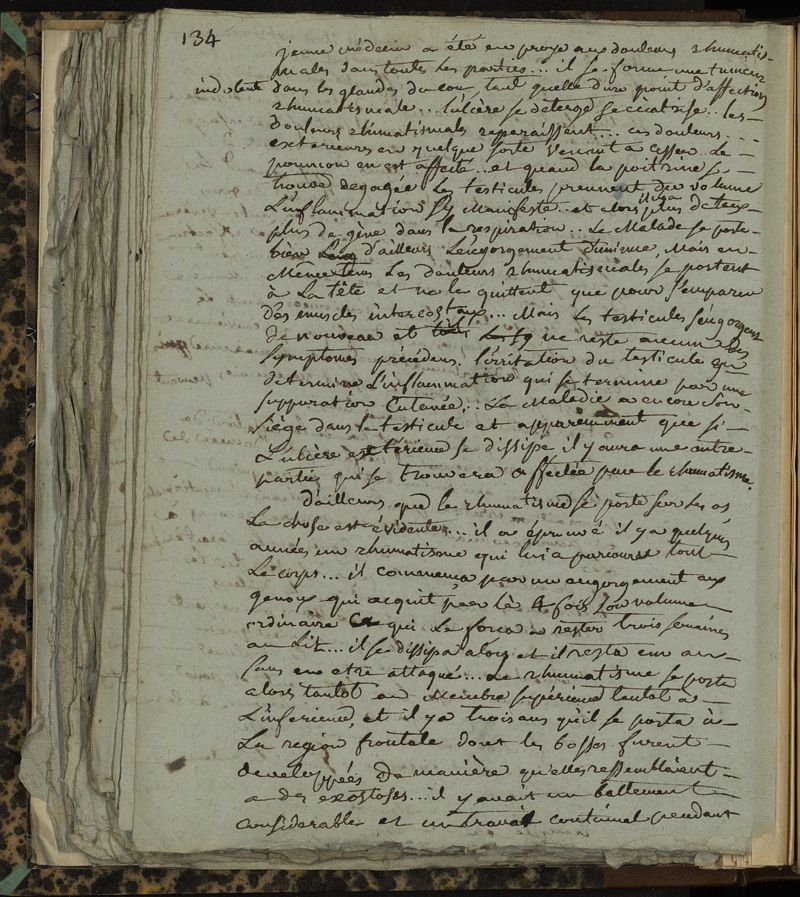 134
jeune médecin a été en proye aux douleurs rhumatis-
males dans toutes les parties... il se forme une tumeur
indolente dans les glandes du cou, tant quelle d'un point d'affection
rhumatismale... l'ulcère se déterge se cicatrise.. les
douleurs rhumatismales reparaissent... ces douleurs...
exterieures en quelque sorte venant a cesser le
poumon en est affecté.. et quand la poitrine se
trouve degagée les testicules prennent du volume
L'inflammation s'y manifeste.. et alors il n'y a plus de toux
plus de gène dans la respiration.. Le Malade se porte
bien d'ailleurs L'engorgement diminue, Mais en
Même tems Les douleurs rhumatismales se portent
à la tête et ne la quittent que pour s'emparer
des muscles intercostaux... Mais les testicules s'engorgent
de nouveau et il ne reste aucun des
symptomes précédens. l'irritation du testicule en
determine L'inflammation qui se termine par une
suppuration Cutenée.. La Maladie a encore son
siège dans le testicule et apparemment que si
L'ulcère extérieur se dissipe il y aura une autre
partie qui se trouvera affectée par le rhumatisme.
d'ailleurs que le rhumatisme se porte sur les os
La chose est évidente... il a éprouvé il y a quelques
années un rhumatisme qui lui a parcouru tout
Le corps... il commença par un engorgement aux
genoux qui acquit par là 4 fois son volume
ordinaire Ce qui Le força a rester trois semaines
au Lit... il se dissipa alors et il resta un an
sans en etre attaqué... Le rhumatisme se porta
alors tantôt au Membre supérieur tantot à
L'inferieur, et il y a trois ans qu'il se porta à
La region frontale dont les bosses furent
developpées De manière qu'elles ressemblaient
a des exostoses... il y avait un battement
considerable et un travail continuel pendant